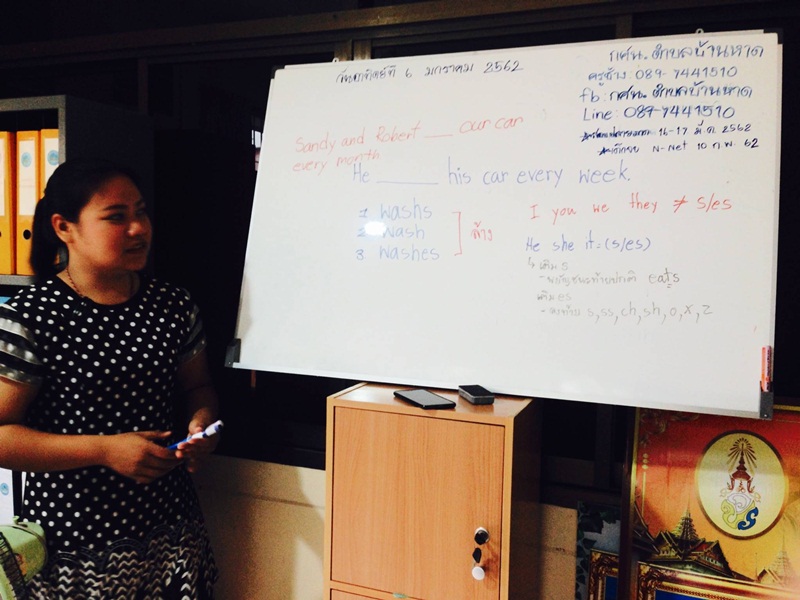 วันอาทิตย์ที่ 6 มกราคม 2562
กศน. ตำบลบ้านหาด
ครูช้าง: 089-7441510
fb: กศน. ตำบลบ้านหาด
Line: 089-7441510
16-17 มี.ค. 2562
N-Net 10 ก.พ. 62
Sandy and Robert ___ our car
every month
He ______ his car every week.
1 washs
2 wash
3 washes
ล้าง
I you we they ≠ s/es
He she it = (s/es)
↳ เติม s
- พยัญชนะท้ายปกติ eats
เติม es
- ลงท้าย s, ss, ch, sh, o, x, z